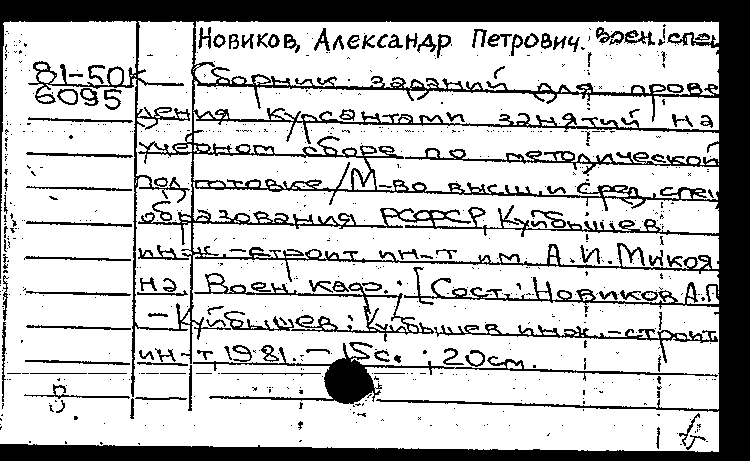 Новиков, Александр Петрович. Воен. спец
81-50к Сборник заданий для прове
6095
дения курсантами занятий на
учебном сборе по методической
подготовке / М-во высш. и сред. спец
образования РСФСР, Куйбышев.
инж.-строит. ин-т им. А.И. Микоя-
на. Воен. каф.; [Сост.: Новиков А.П
– Куйбышев: Куйбышев инж.-строит
ин-т, 1981. – 15с. ; 20см.